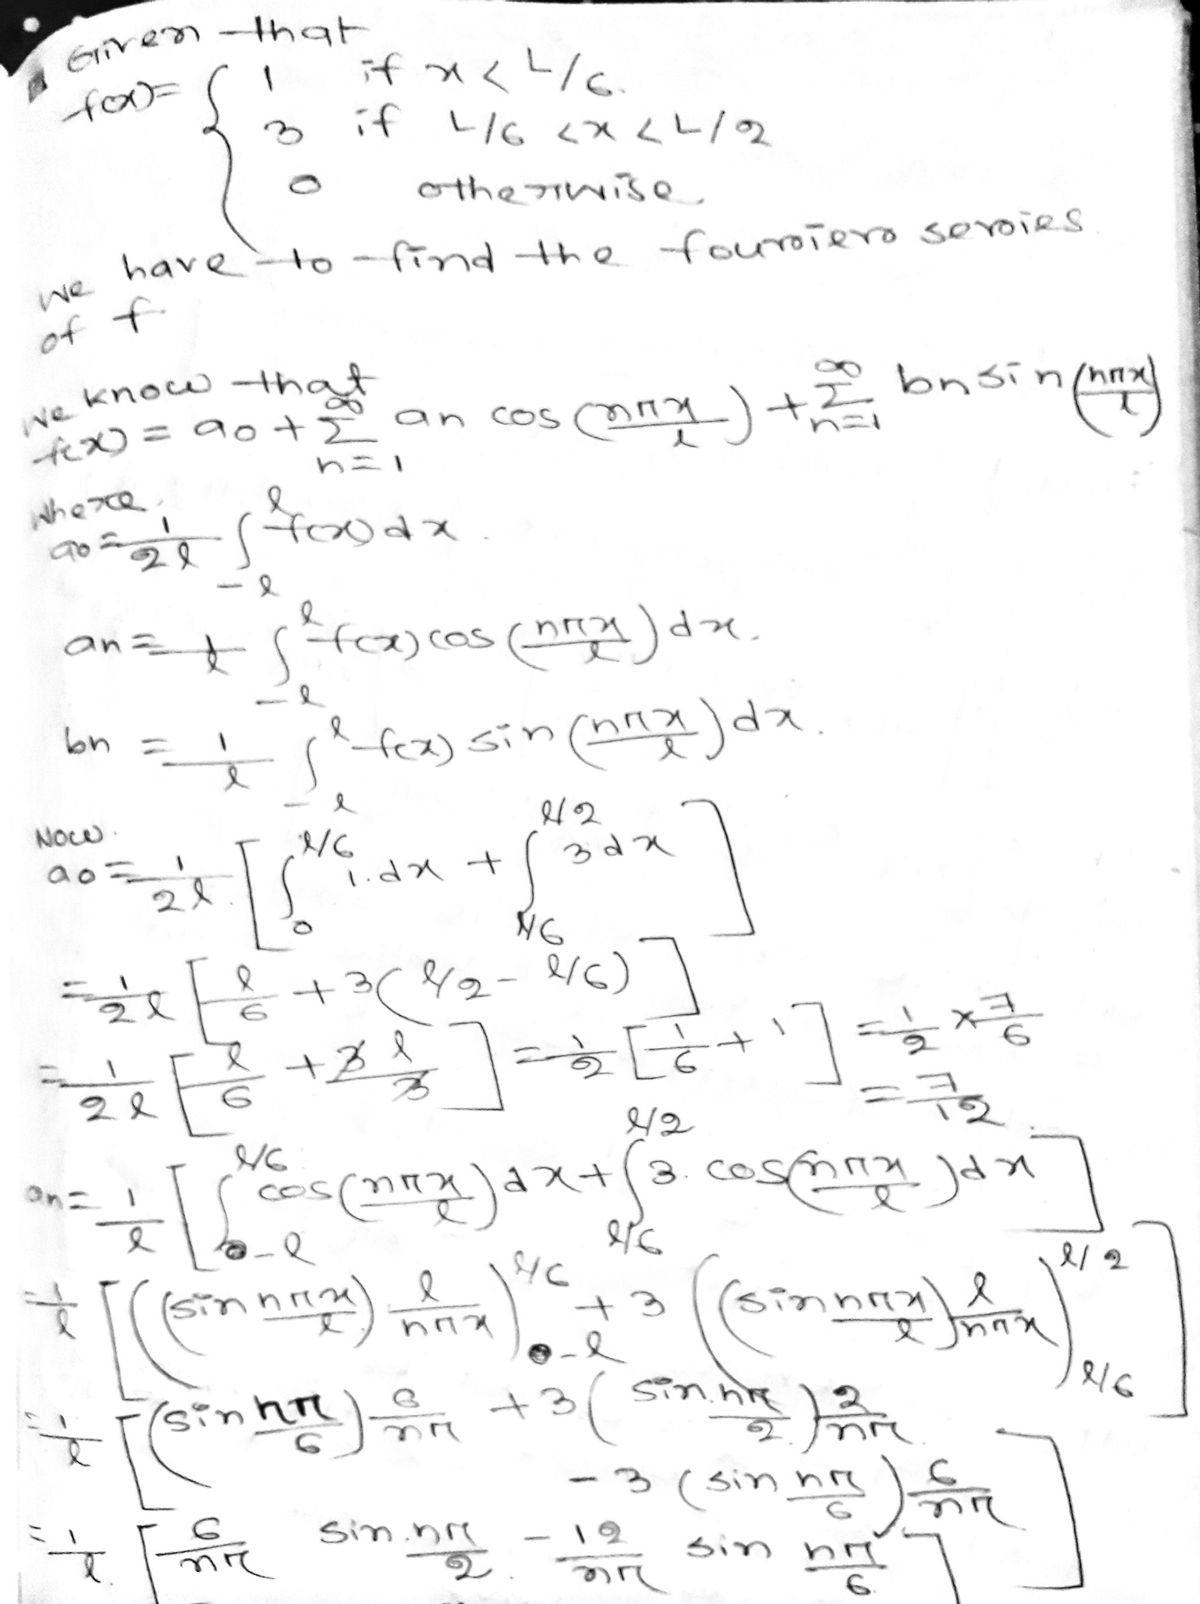 Given that
f(x)= { 1 if x < L/6.
3 if L/6 < x < L/2
0 otherwise.
we have to find the fouriero seroies
of f
we know that
f(x) = a0 + ∑_{n=1}^{∞} an cos (nπx/l) + ∑_{n=1}^{∞} bn sin (nπx/l)
where.
a0 = 1/2l ∫_{-l}^{l} f(x) dx.
an = 1/l ∫_{-l}^{l} f(x) cos (nπx/l) dx.
bn = 1/l ∫_{-l}^{l} f(x) sin (nπx/l) dx.
Now.
a0 = 1/2l [ ∫_{0}^{l/6} 1.dx + ∫_{l/6}^{l/2} 3 dx ]
= 1/2l [ l/6 + 3( l/2 - l/6) ]
= 1/2l [ l/6 + 3 l/3 ] = 1/2 [ 1/6 + 1 ] = 1/2 × 7/6
= 7/12
an = 1/l [ ∫_{-l}^{l/6} cos (nπx/l) dx + ∫_{l/6}^{l/2} 3. cos (nπx/l) dx ]
= 1/l [ ((sin nπx/l) l/nπx)_{-l}^{l/6} + 3 ((sin nπx/l) l/nπx)_{l/6}^{l/2} ]
= 1/l [ (sin nπ/6) 6/nπ + 3 ( sin. nπ/2.) 2/nπ
- 3 (sin nπ/6) 6/nπ ]
= 1/l. [ 6/nπ sin. nπ/2. - 12/nπ sin nπ/6. ]